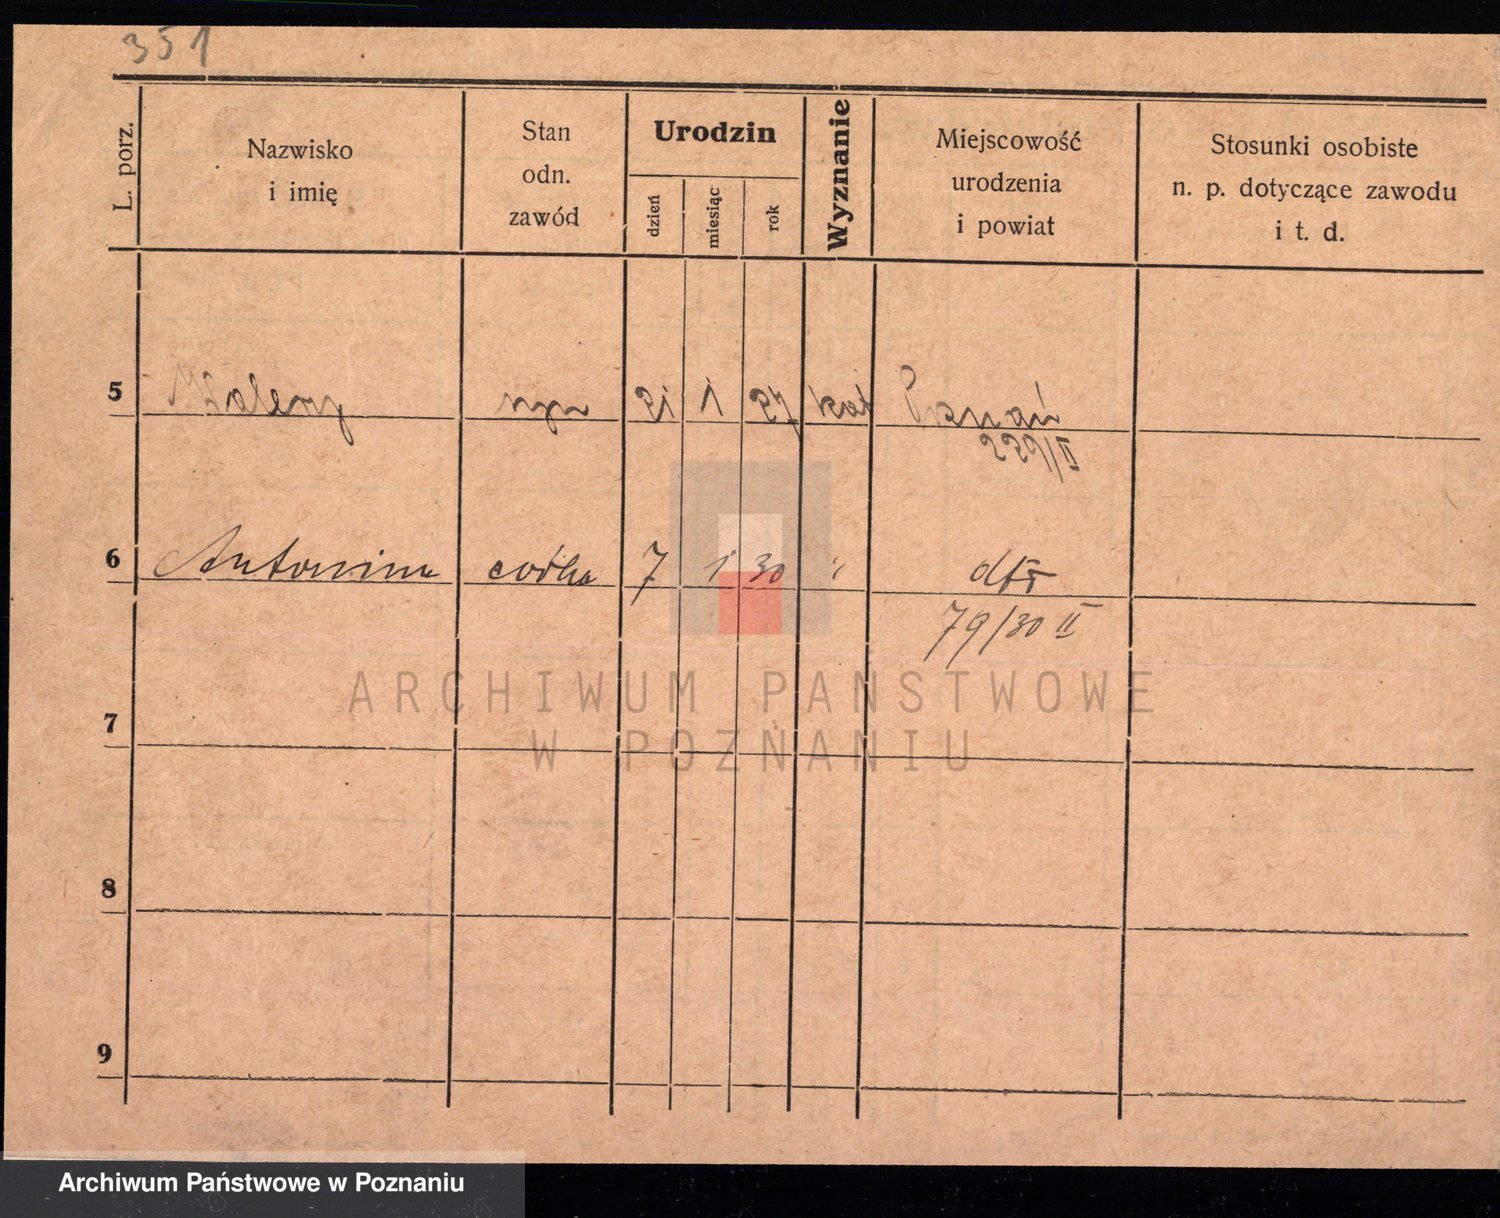 351
L. porz.
Nazwisko
i imię
Stan
odn.
zawód
Urodzin
dzień
miesiąc
rok
Wyznanie
Miejscowość
urodzenia
i powiat
Stosunki osobiste
n. p. dotyczące zawodu
i t. d.
5 Walery syn 1 27 kat Poznań
6 Antonina córka 7 1 30 " dtto
79/30 II
7
8
9
ARCHIWUM PAŃSTWOWE
W POZNANIU
Archiwum Państwowe w Poznaniu